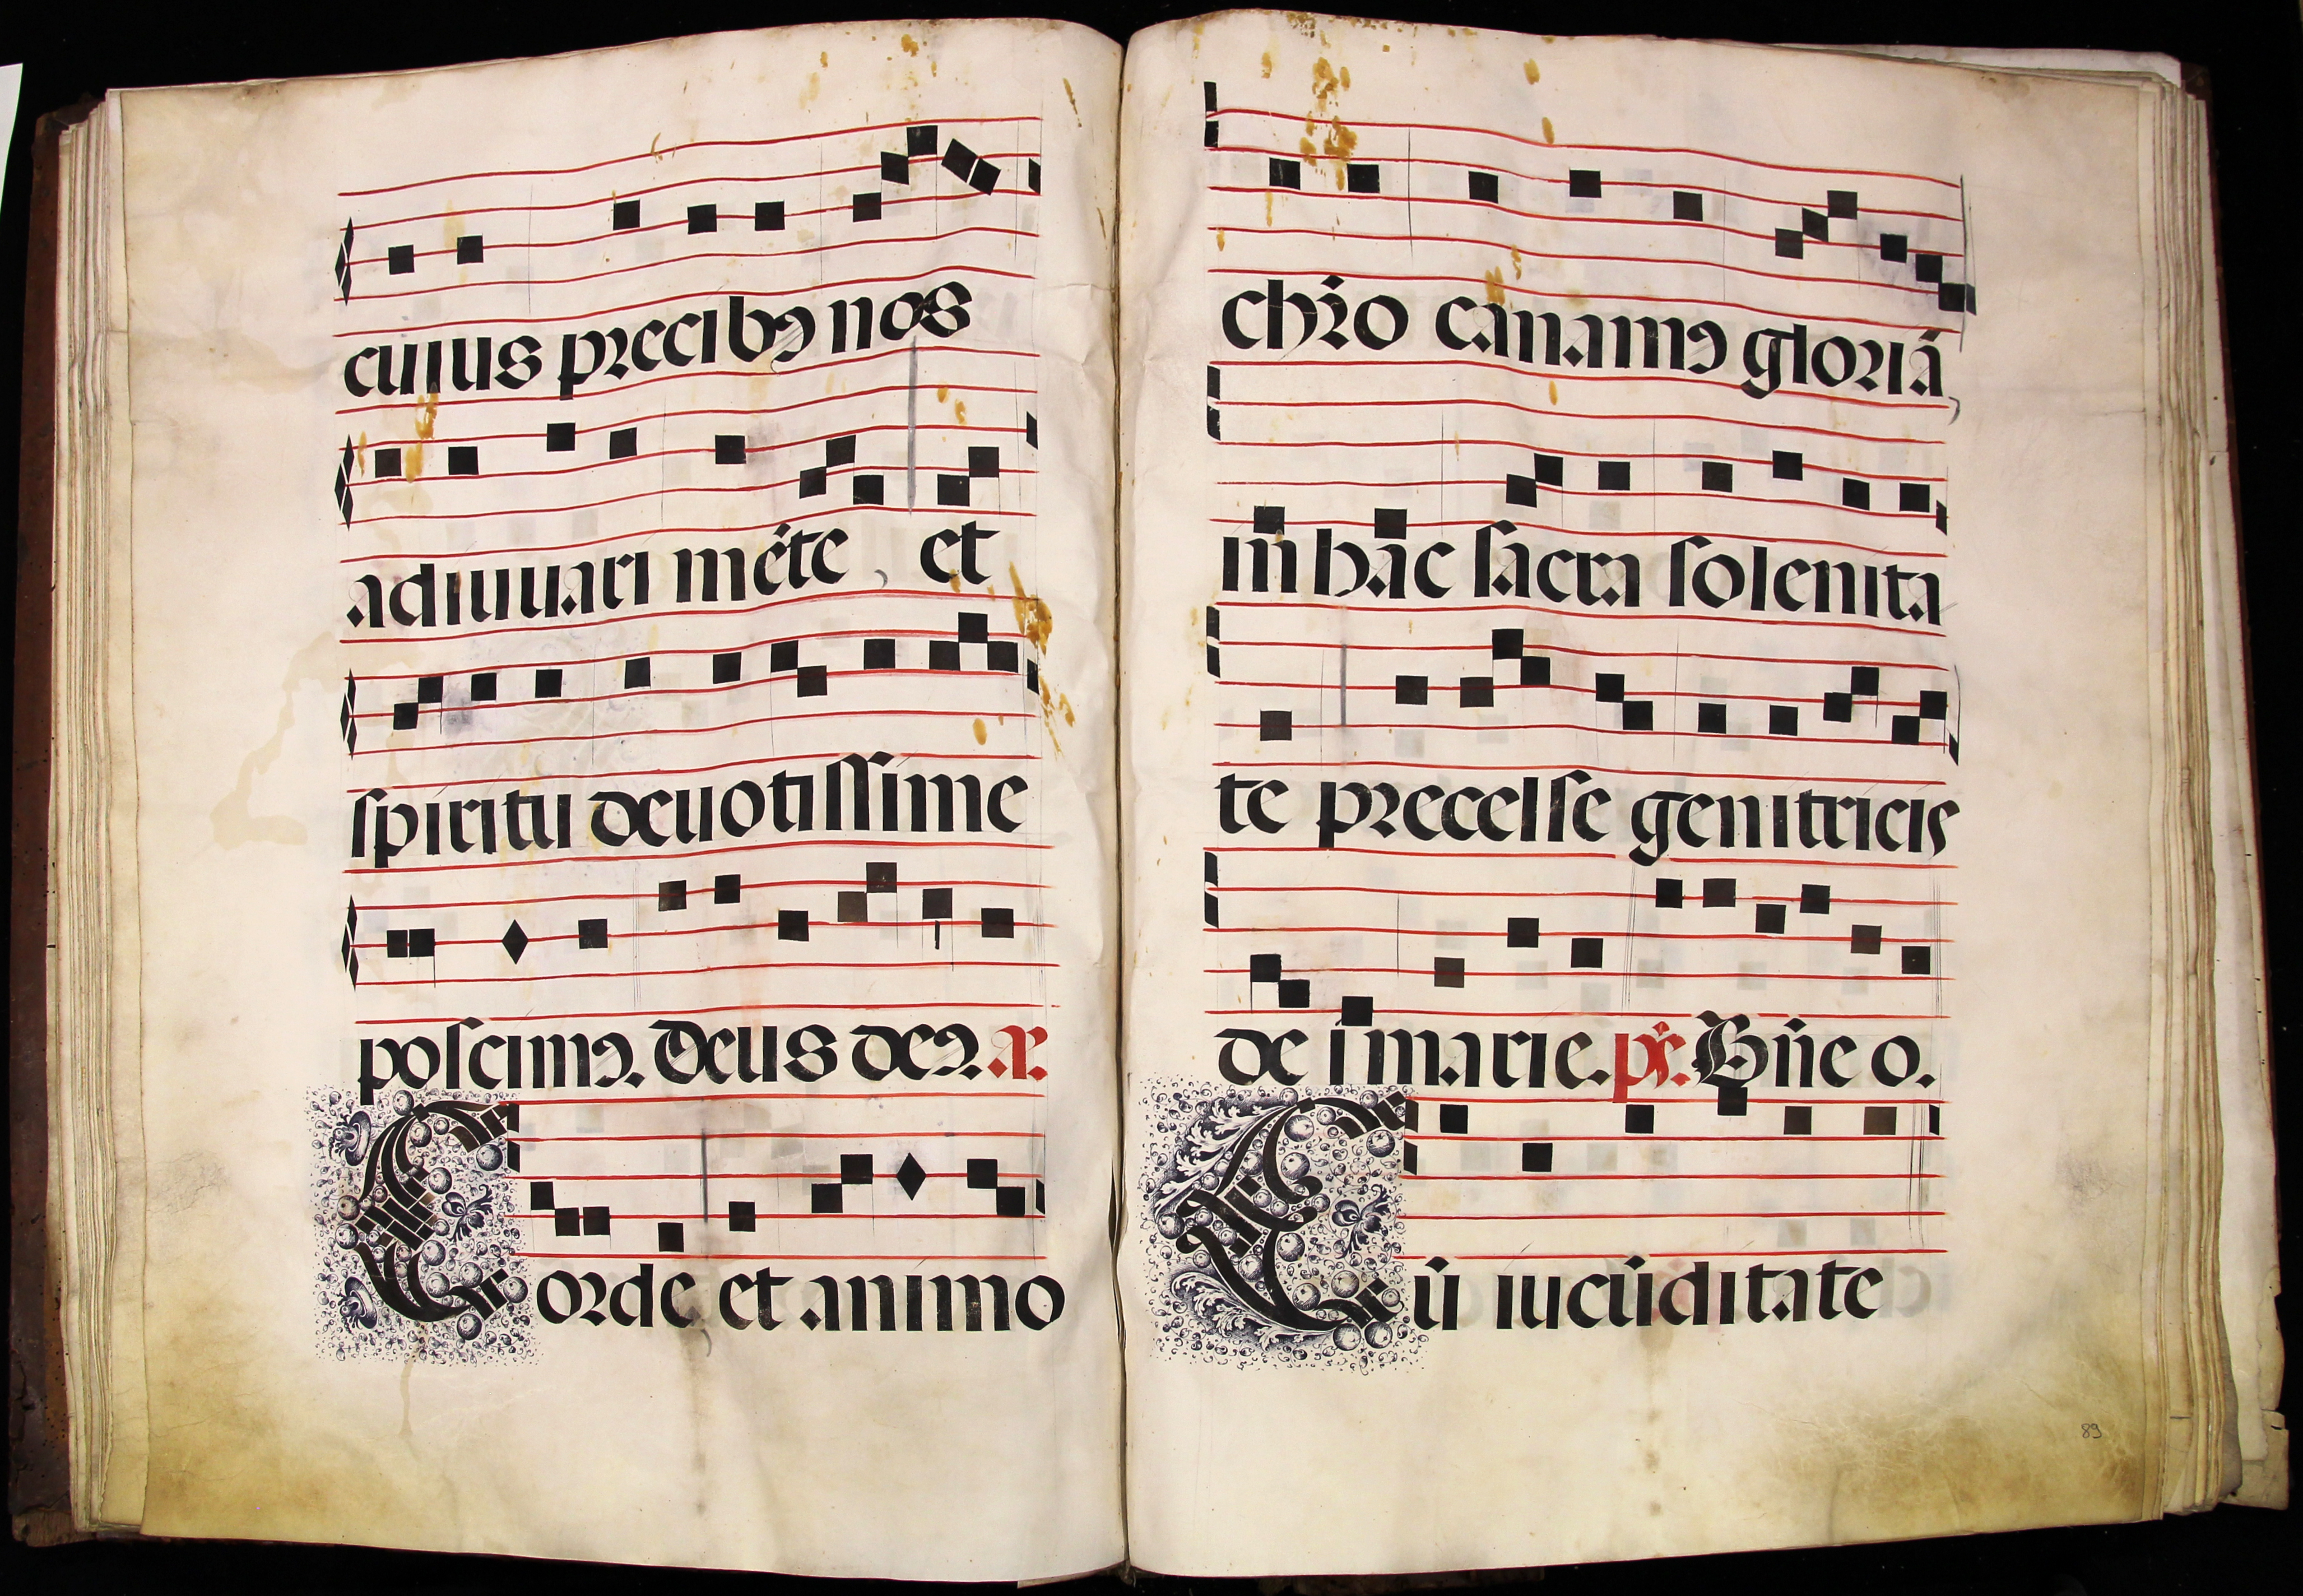 cuius precibꝯ nos
adiuuari méte , et
spiritu deuotissime
poscimꝯ. Deus deꝯ. a͂.
Corde et animo
chr̃o canamꝯ gloriã,
in hãc sacra solenita
te precelse genitricis
dei marie. ps̃. Dñe o.
Cũ iucũditate
89